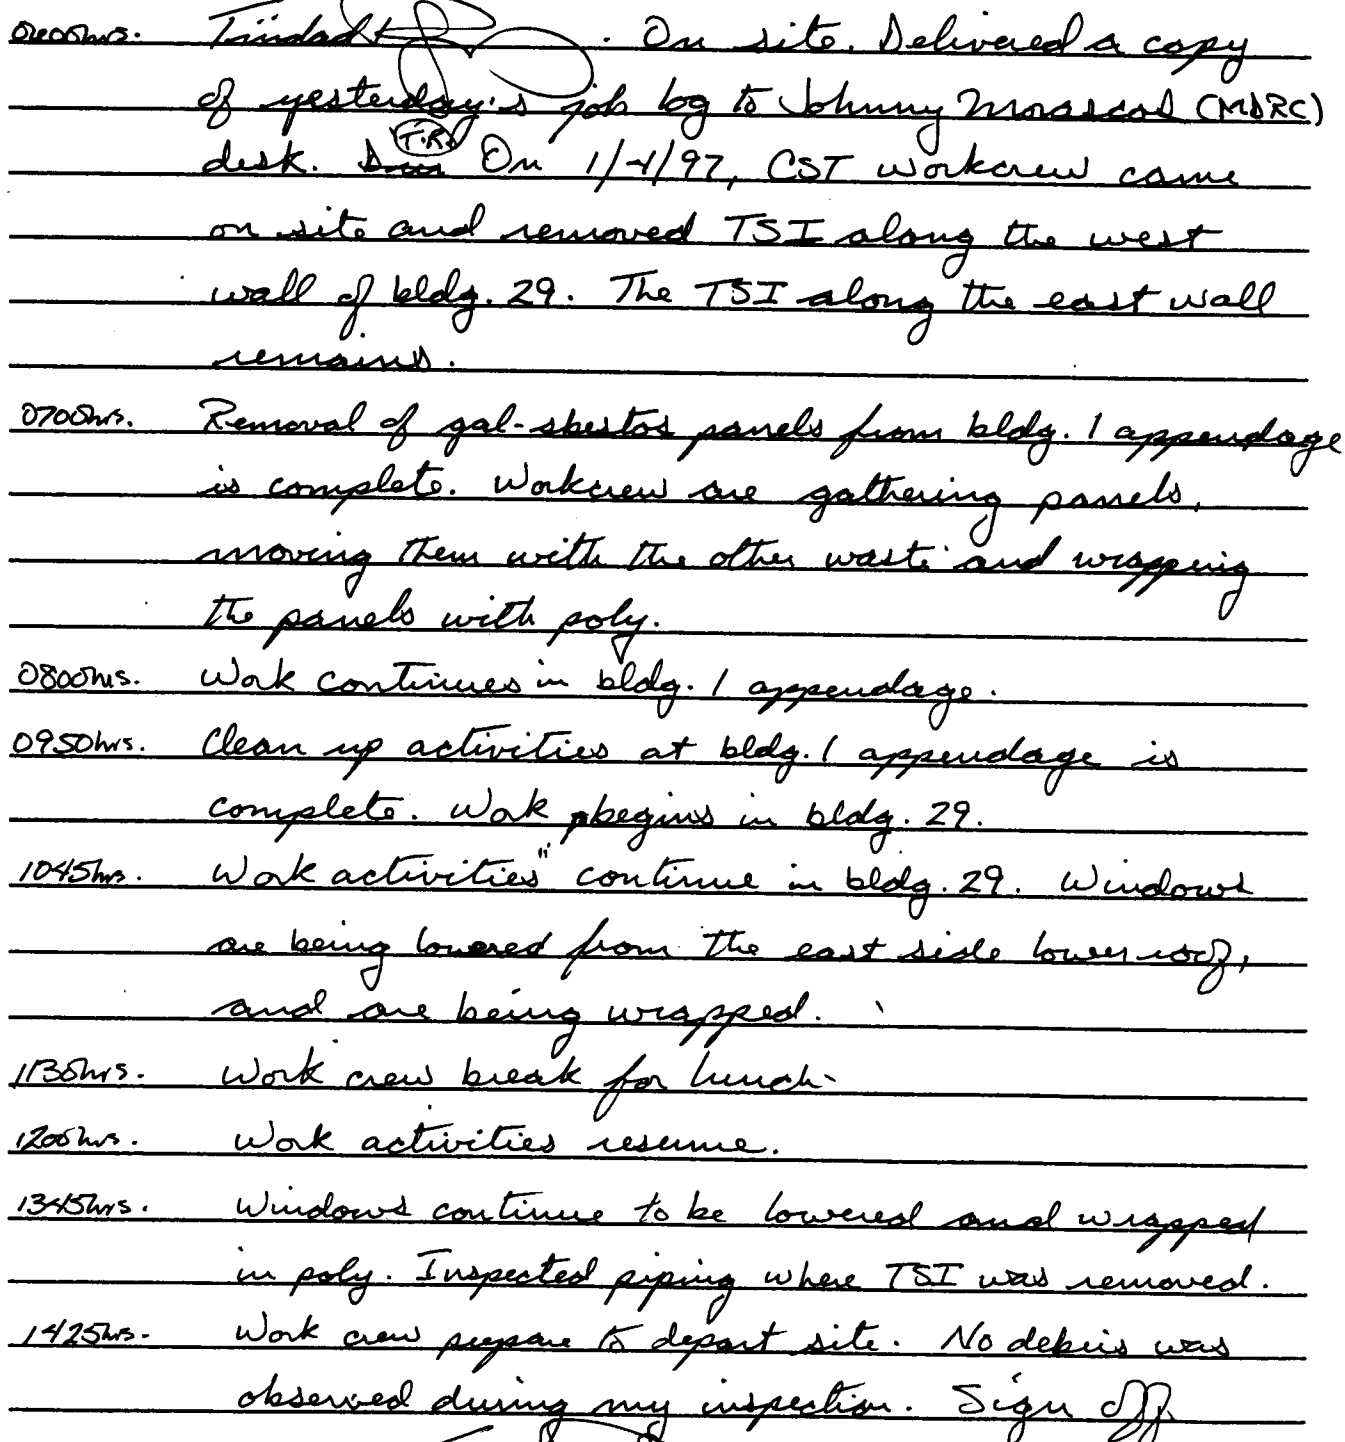 0600hrs. Trinidad . On site. Delivered a copy
of yesterday's job log to Johnny (MDRC)
T.R.
desk. On 1/4/97, CST workcrew came
on site and removed TSI along the west
wall of bldg. 29. The TSI along the east wall
remains.
0700hrs. Removal of gal-sbestos panels from bldg. 1 appendage
is complete. Workcrew are gathering panels,
moving them with the other waste and wrapping
the panels with poly.
0800hrs. Work continues in bldg. 1 appendage.
0950hrs. Clean up activities at bldg. 1 appendage is
complete. Work begins in bldg. 29.
1045hrs. Work activities continue in bldg. 29. Windows
are being lowered from the east side lower roof,
and are being wrapped.
1130hrs. Work crew break for lunch.
1200hrs. Work activities resume.
1345hrs. Windows continue to be lowered and wrapped
in poly. Inspected piping where TSI was removed.
1425hrs. Work crew prepare to depart site. No debris was
observed during my inspection. Sign off.